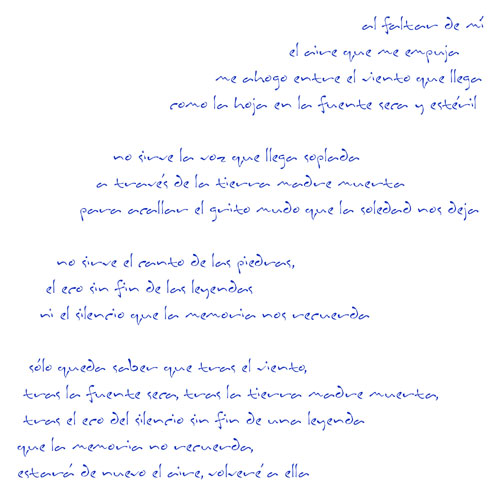 al faltar de mí
el aire que me empuja
me ahogo entre el viento que llega
como la hoja en la fuente seca y estéril
no sirve la voz que llega soplada
a través de la tierra madre muerta
para acallar el grito mudo que la soledad nos deja
no sirve el canto de las piedras,
el eco sin fin de las leyendas
ni el silencio que la memoria nos recuerda
sólo queda saber que tras el viento,
tras la fuente seca, tras la tierra madre muerta,
tras el eco del silencio sin fin de una leyenda
que la memoria no recuerda,
estará de nuevo el aire, volveré a ella